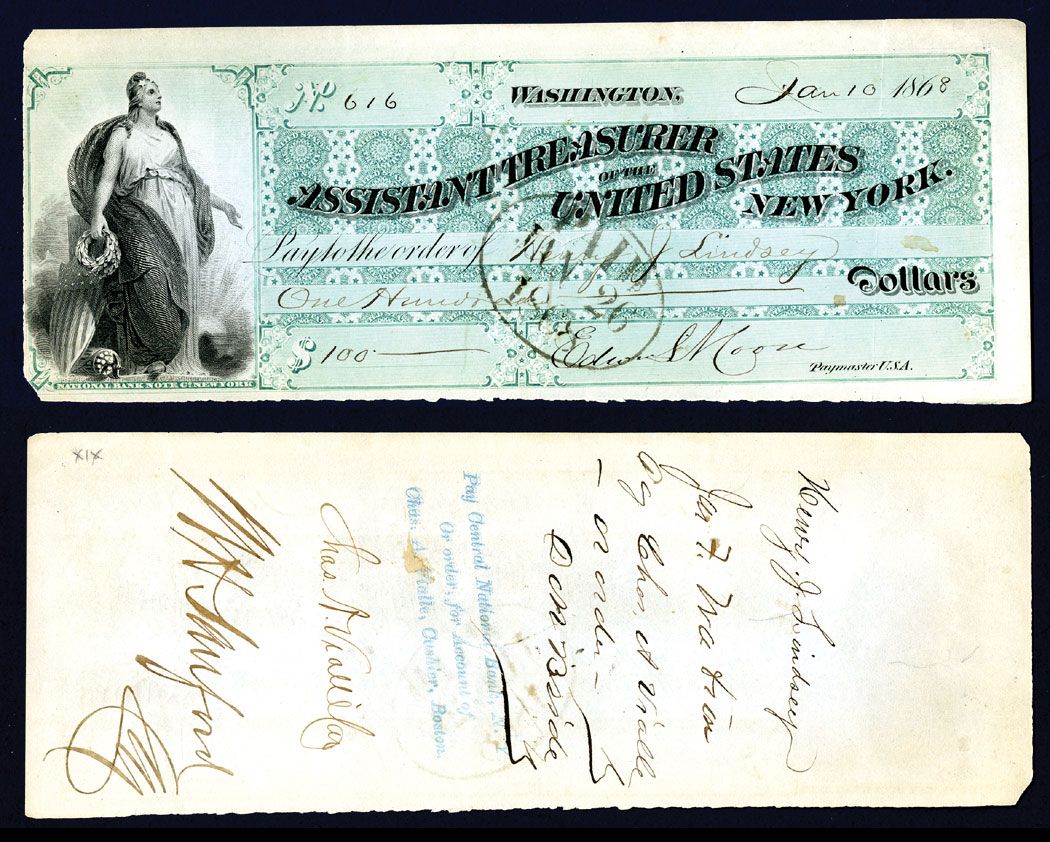 No 616
WASHINGTON,
Jan 10 1868
ASSISTANT TREASURER
OF THE
UNITED STATES
NEW YORK.
Pay to the order of Henry J. Lindsey
One Hundred
Dollars
$ 100
PAID
JAN 26
Edwin L Moore
Paymaster U.S.A.
NATIONAL BANK NOTE Co. NEW YORK
XIX
Henry J. Lindsey
Pay Chas A Vialle
or order
Pay Central National Bank, N.Y.
Or order, for Account of
Chas. A. Vialle, Cashier, Boston.
Chas. A. Vialle Cas